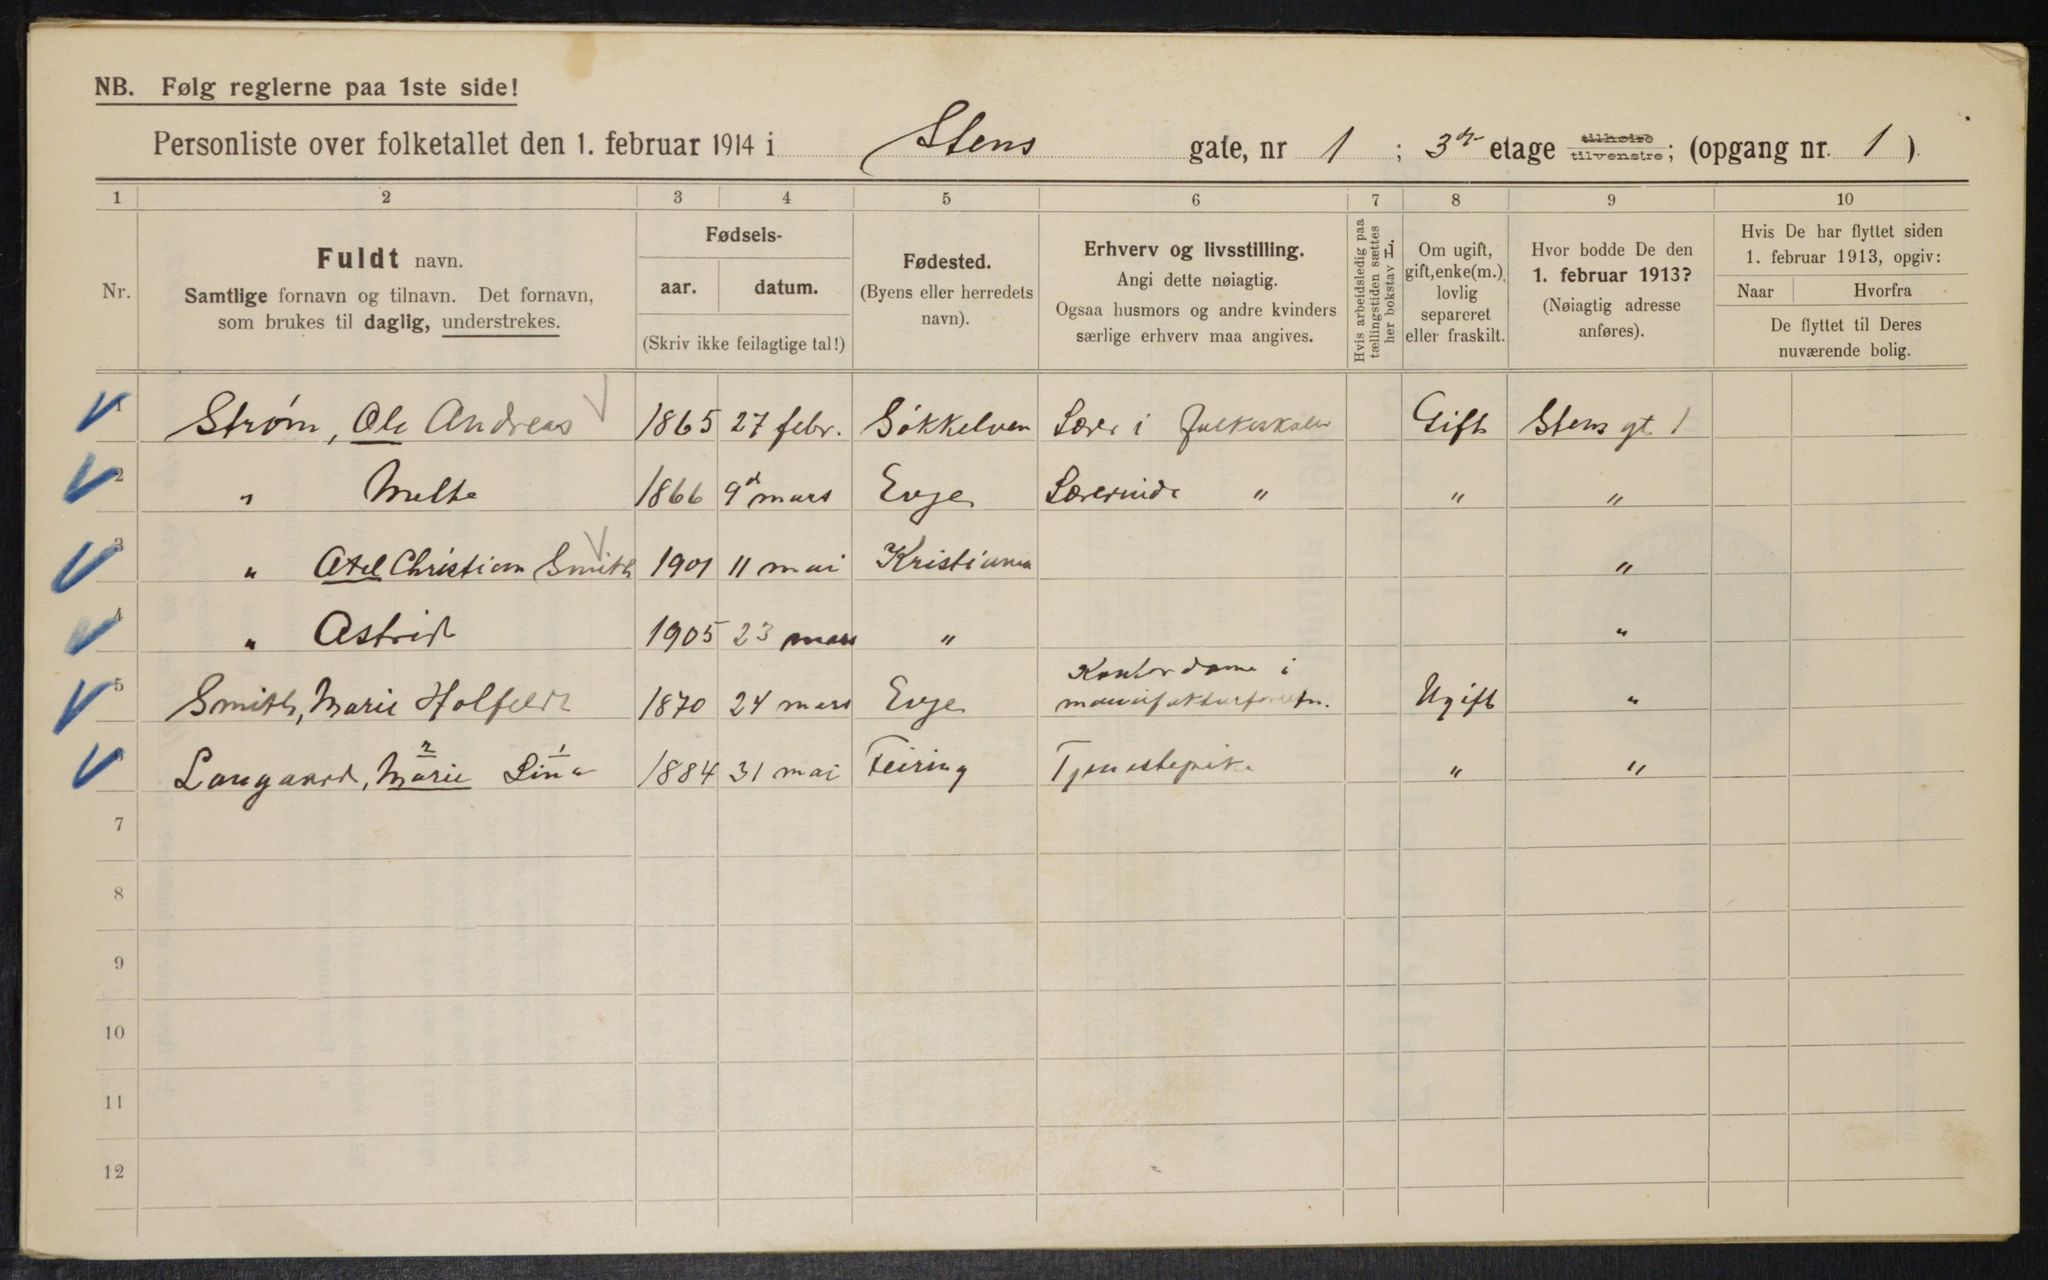 NB. Følg reglerne paa 1ste side!
Personliste over folketallet den 1. februar 1914 i Stens gate, nr 1 ; 3die etage tilhøire tilvenstre; (opgang nr. 1 ).
1 2 3 4 5 6 7 8 9 10
Nr.
Fuldt navn.
Samtlige fornavn og tilnavn. Det fornavn,
som brukes til daglig, understrekes.
Fødsels-
aar. datum.
(Skriv ikke feilagtige tal!)
Fødested.
(Byens eller herredets
navn).
Erhverv og livsstilling.
Angi dette nøiagtig.
Ogsaa husmors og andre kvinders
særlige erhverv maa angives.
Hvis arbeidsledig paa
tællingstiden sættes
her bokstav L.
Om ugift,
gift, enke(m.),
lovlig
separeret
eller fraskilt.
Hvor bodde De den
1. februar 1913?
(Nøiagtig adresse
anføres).
Hvis De har flyttet siden
1. februar 1913, opgiv:
Naar Hvorfra
De flyttet til Deres
nuværende bolig.
1 Strøm, Ole Andreas 1865 27 febr. Søkkelven Lærer i folkeskolen Gift Stens gt 1
2 " Melta 1866 9d mars Evje Lærerinde " " "
3 " Axel Christian Smith 1901 11 mai Kristiania "
4 " Astrid 1905 23 mars " "
5 Smith, Marie Holfeldt 1870 24 mars Evje Kontordame i
manufakturforretn. Ugift "
6 Langaard, Marie 2 Lina 1 1884 31 mai Feiring Tjenestepike " "
7
8
9
10
11
12